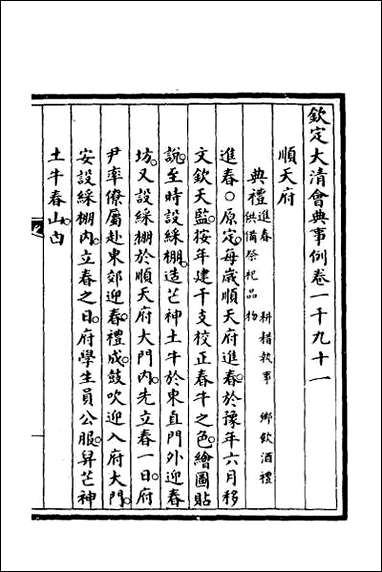 欽定大清會典事例卷一千九十一
順天府
典禮 進春 耕耤執事 鄉飲酒禮 供備祭祀品物
進春○原定每歲順天府進春於豫年六月移
文欽天監按年建干支校正春牛之色繪圖貼
說至時設綵棚造芒神土牛於東直門外迎春
坊又設綵棚於順天府大門內先立春一日府
尹率僚屬赴東郊迎春禮成鼓吹迎入府大門
安設綵棚內立春之日府學生員公服舁芒神
土牛春山由